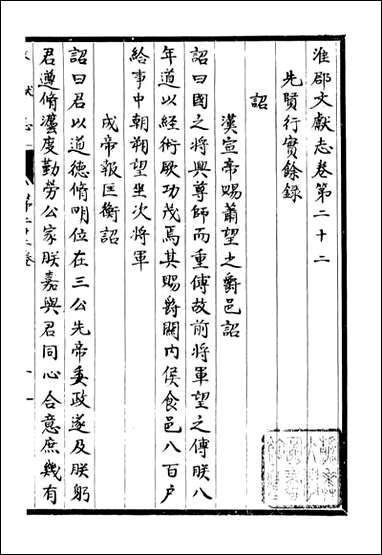 淮郡文獻志卷第二十二
先賢行實餘錄
詔
漢宣帝賜蕭望之爵邑詔
詔曰國之將興尊師而重傅故前將軍望之傅朕八
年道以經術厥功茂焉其賜爵關內侯食邑八百戶
給事中朝朔望坐次將軍
成帝報匡衡詔
詔曰君以道德脩明位在三公先帝委政遂及朕躬
君遵脩灋度勤勞公家朕嘉與君同心合意庶幾有
獻志
第二十二卷
一